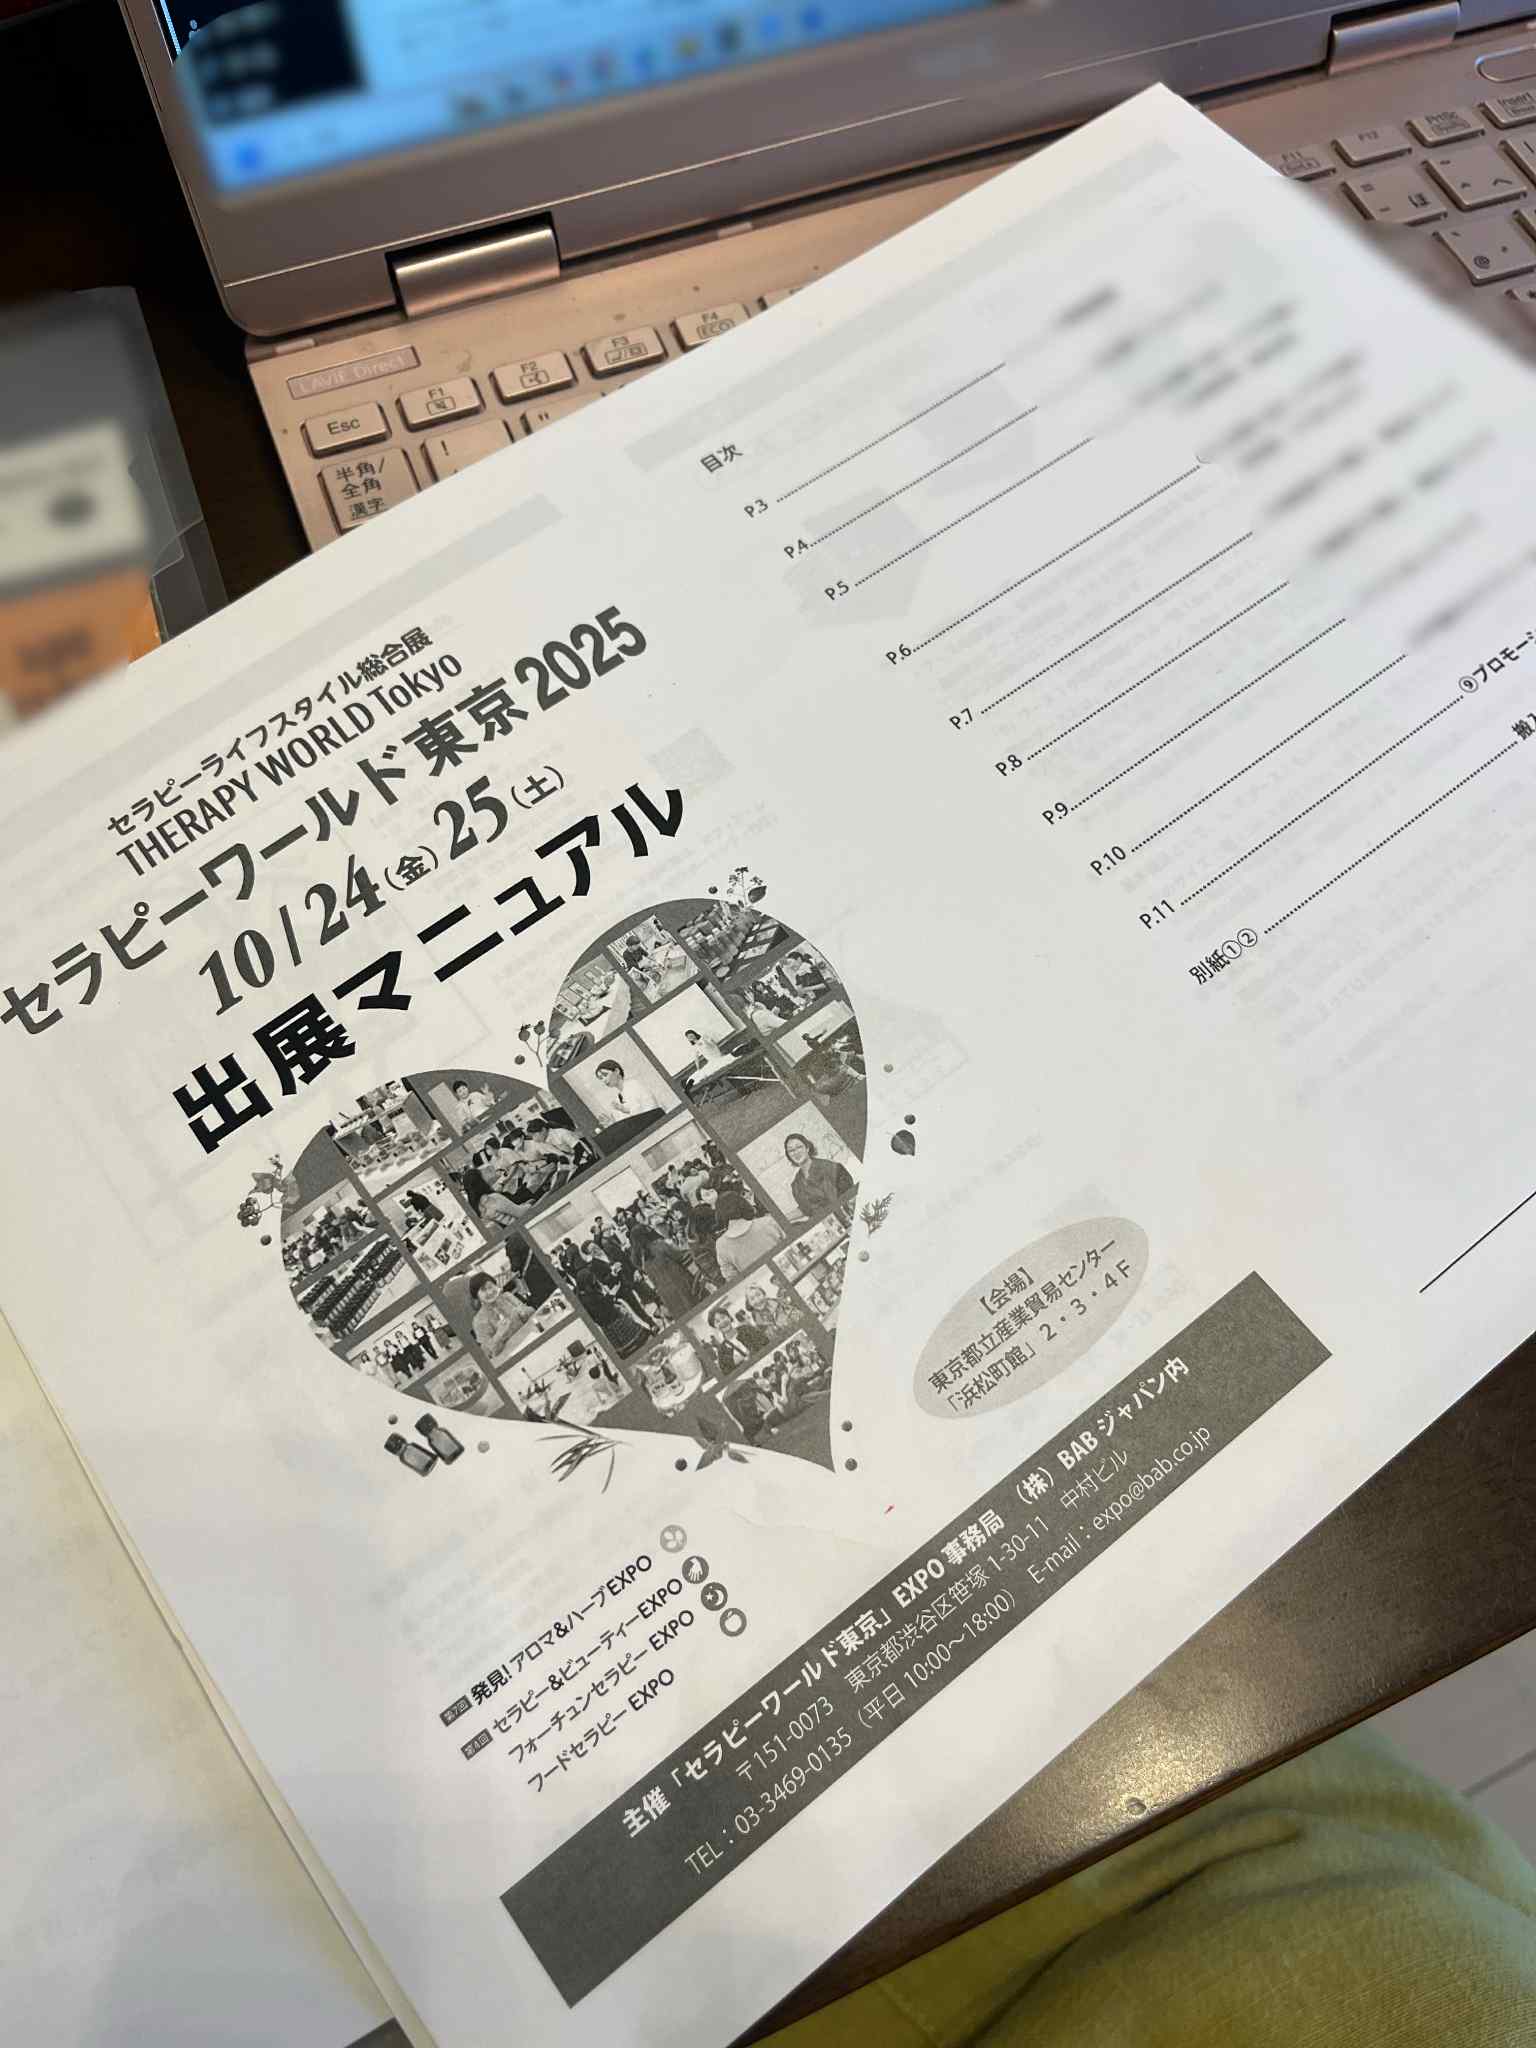 LAVIE Direct
Esc
F1
F2
F3
F4
ECO
F11
F12
PrtSc
Insert
半角/
全角
漢字
セラピーライフスタイル総合展
THERAPY WORLD Tokyo
セラピーワールド東京2025
10/24(金)25(土)
出展マニュアル
【会場】
東京都立産業貿易センター
「浜松町館」2・3・4F
第7回 発見!アロマ&ハーブEXPO
第4回 セラピー&ビューティーEXPO
フォーチュンセラピーEXPO
フードセラピーEXPO
主催「セラピーワールド東京」EXPO事務局 (株)BABジャパン内
〒151-0073 東京都渋谷区笹塚1-30-11 中村ビル
TEL:03-3469-0135(平日10:00〜18:00) E-mail:expo@bab.co.jp
目次
P.3
P.4
P.5
P.6
P.7
P.8
P.9
P.10 ⑨プロモー
P.11 搬
別紙①②